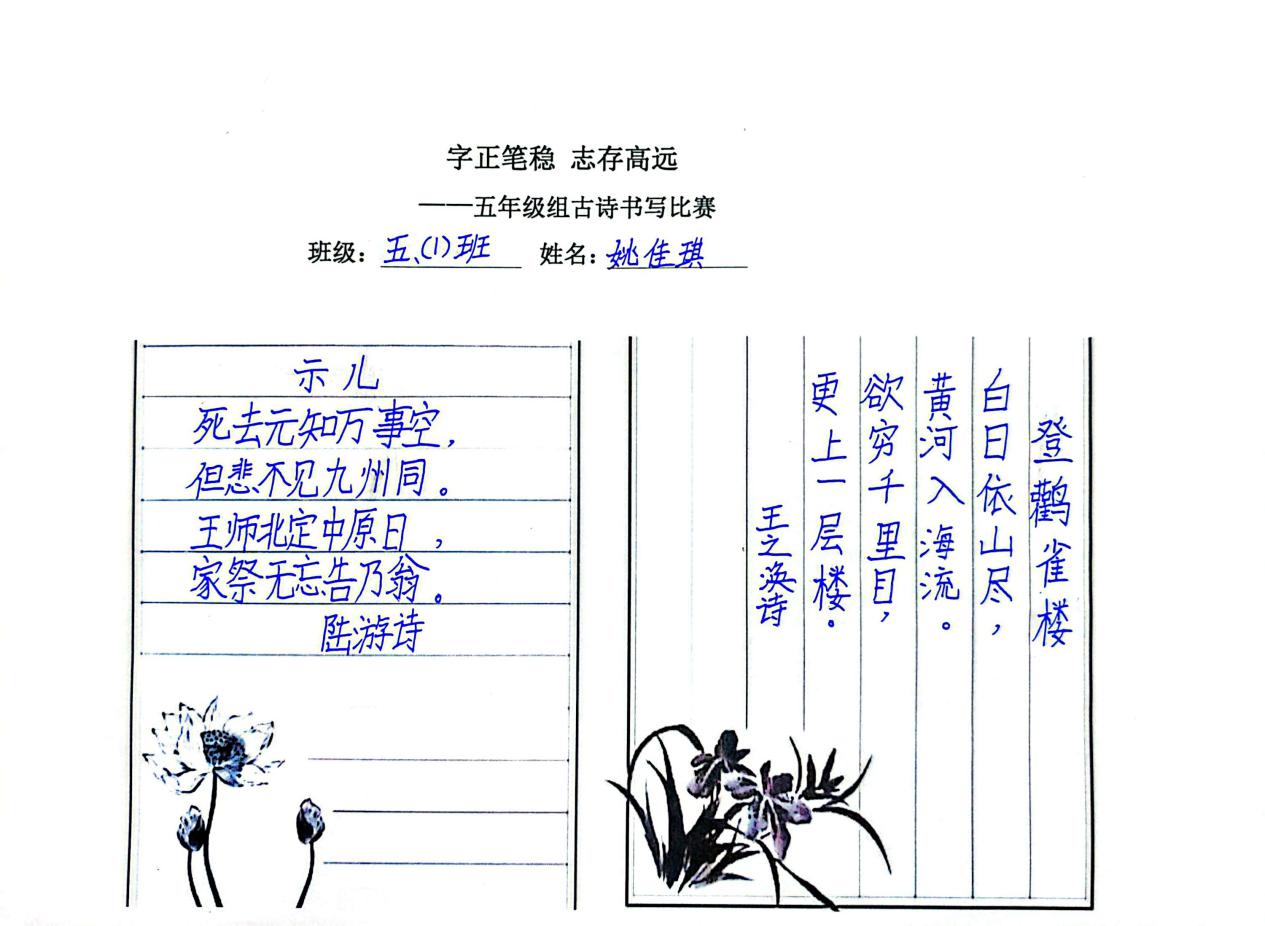 字正笔稳 志存高远
——五年级组古诗书写比赛
班级：五、(1)班 姓名：姚佳琪
示儿
死去元知万事空，
但悲不见九州同。
王师北定中原日，
家祭无忘告乃翁。
陆游诗
登鹳雀楼
白日依山尽，
黄河入海流。
欲穷千里目，
更上一层楼。
王之涣诗